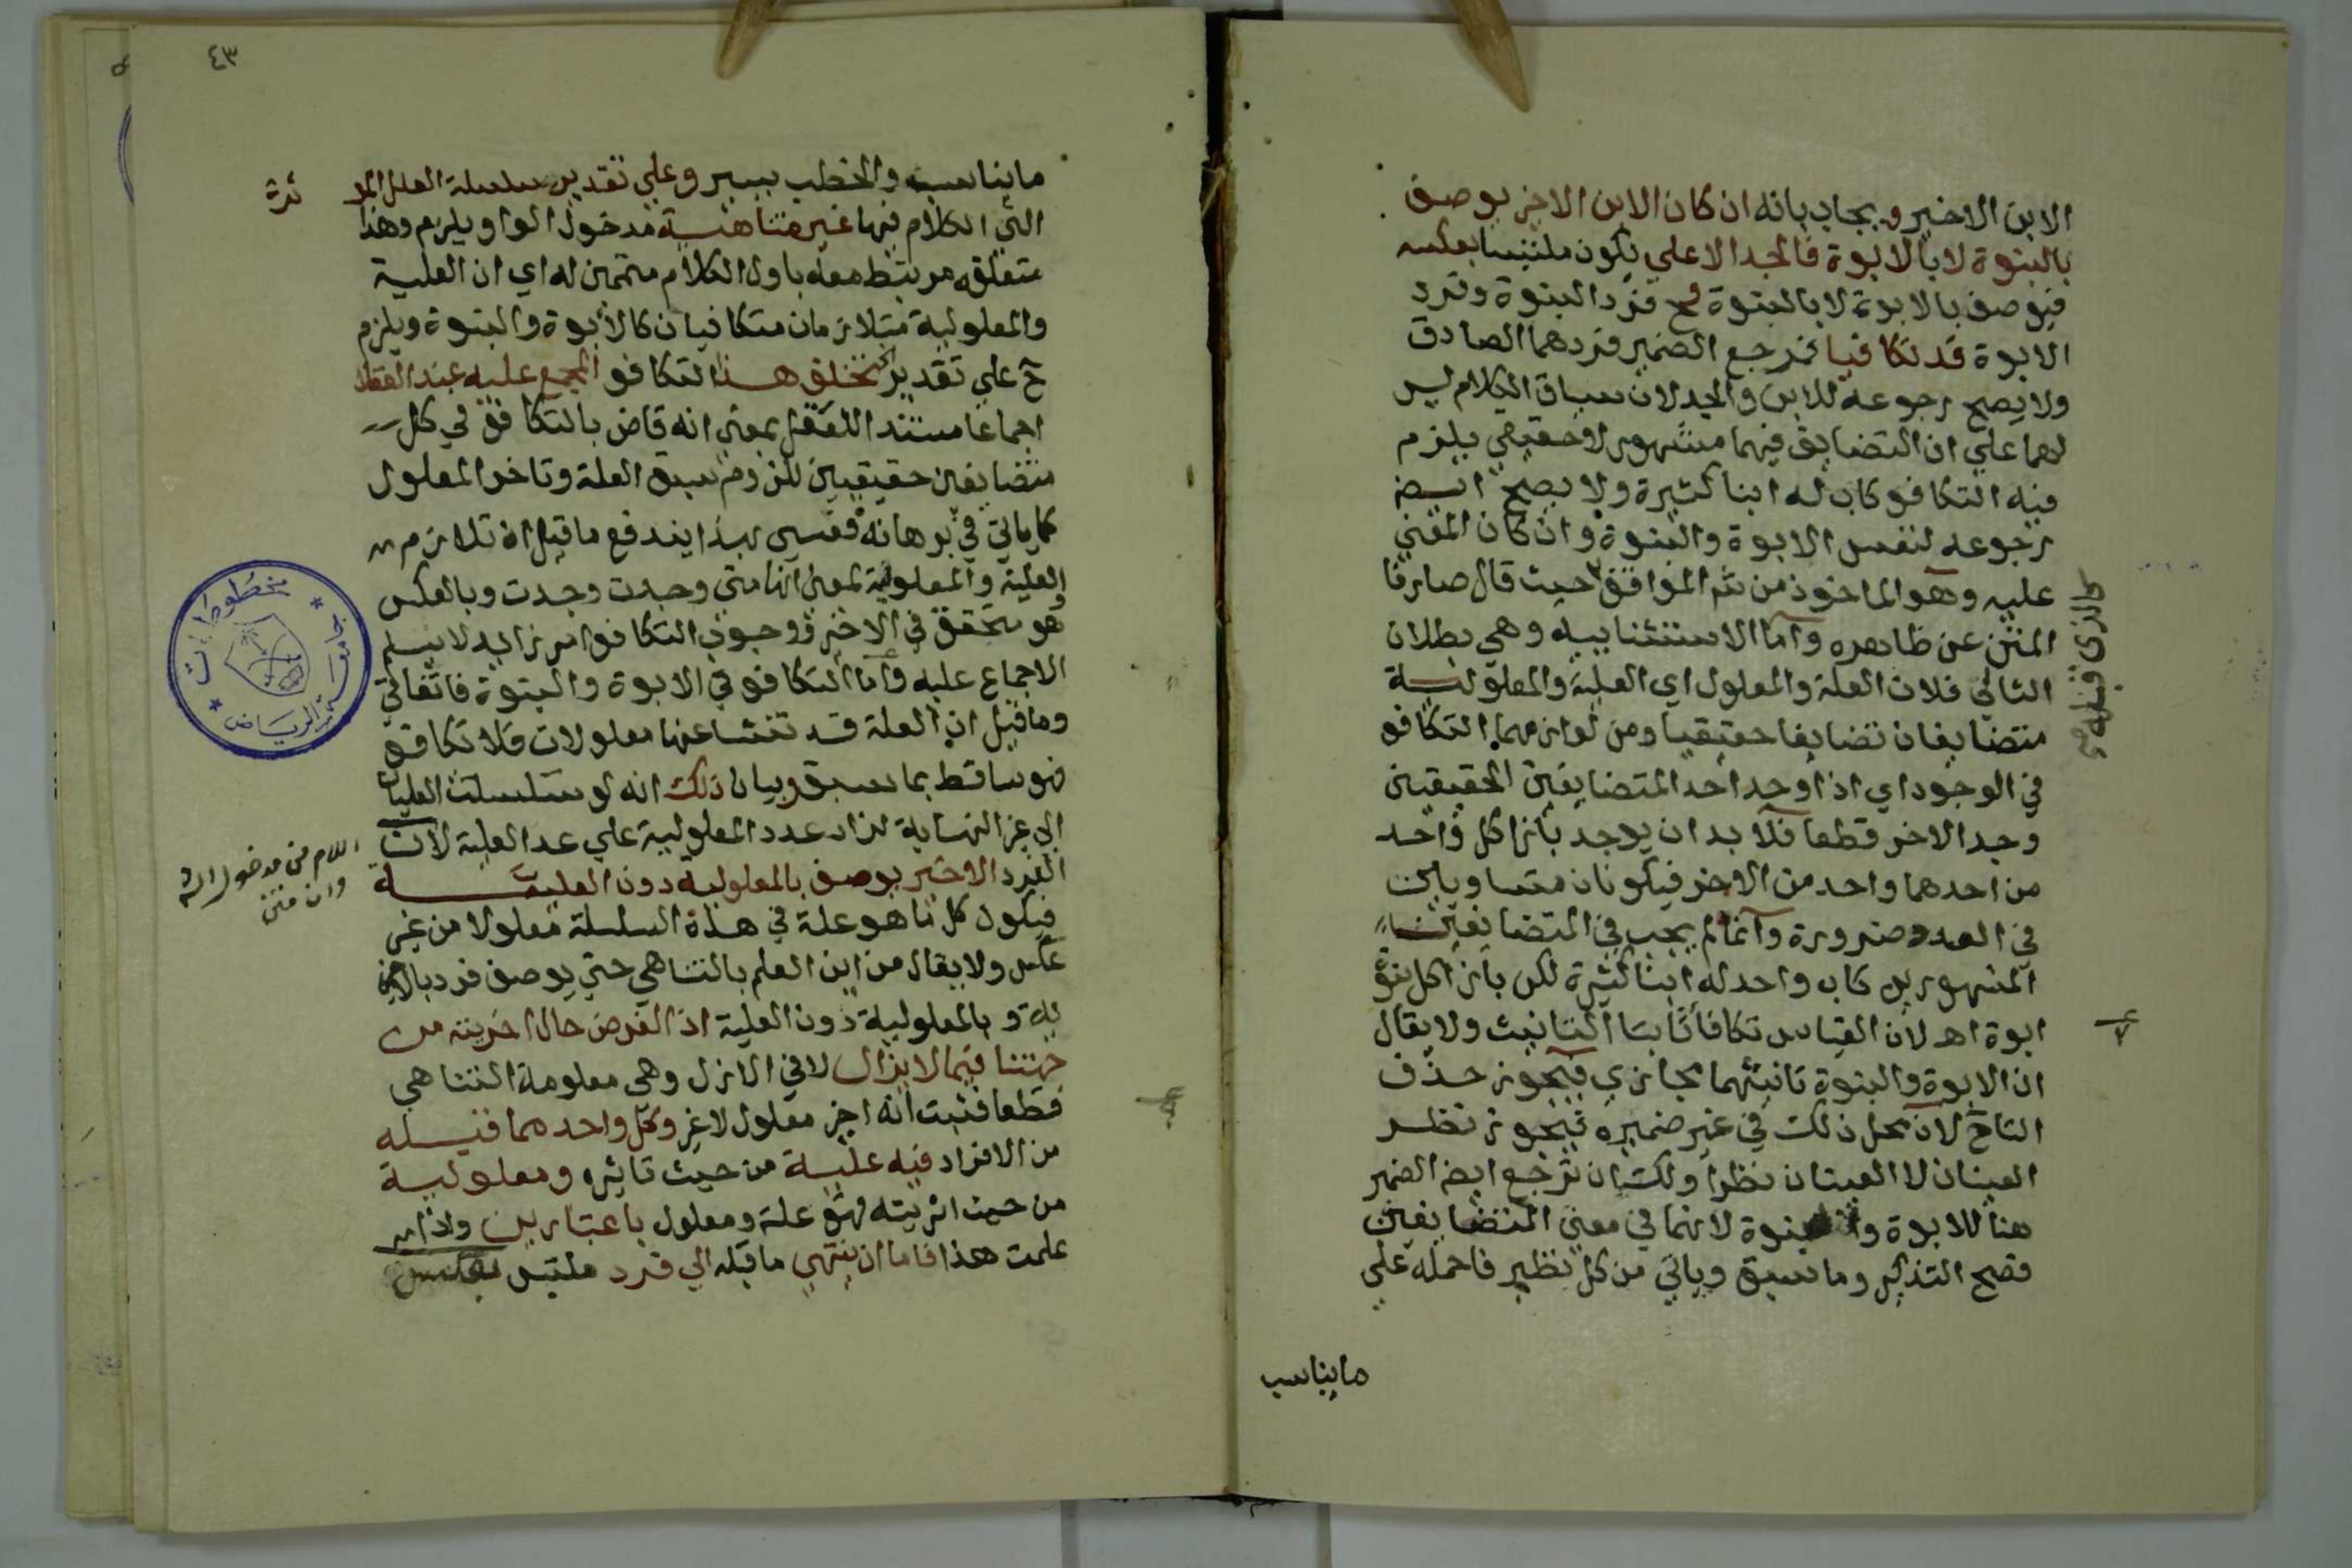 الابن الاخير ويجاب بانه ان كان الابن الاخر يوصف
بالبنوة لا بالابوة فالجد الاعلي يكون ملتبسا بعكسه
فيوصف بالابوة لا بالبنوة وح فرد البنوة وفرد
الابوة قد تكافيا فمرجع الضمير فردهما الصادق
ولا يصح رجوعه للابن والجد لان سياق الكلام ليس
لهما علي ان التضايف فيهما مشهور لا حقيقي يلزم
فيه التكافو كاب له ابنا كثيرة ولا يصح ايضا
رجوعه لنفس الابوة والبنوة وان كان المعني
عليه وهو الماخوذ من الموافق حيث قال صارفا
المتن عن ظاهره واما الاستثنابيه وهي بطلان
التالي فلان العلة والمعلول اي العلية والمعلولية
متضايفان تضايفا حقيقيا ومن لوازمهما التكافو
في الوجود اي اذا وجد احد المتضايفين الحقيقين
وجد الاخر قطعا فلا بد ان يوجد بازا كل واحد
من احدهما واحد من الاخر فيكونان متساويين
في العدد ضرورة وانما لم يجب في المتضايفين
المشهورين كاب واحد له ابنا كثيرة لكن بازا كل بنوة
ابوة اهـ لان القياس تكافأتا بتا التانيث ولا يقال
ان الابوة والبنوة تانيثهما مجازي فيجوز حذف
التاء لان محل ذلك في غير ضميره فيجوز نظر
العينان لا العينان نظرا ولك ان ترجع ايضا الضمير
هنا للابوة والبنوة لانهما في معني المتضايفين
فصح التذكير وما سبق وياتي من كل نظير فاحمله علي
ما يناسب
٤٣
ما يناسبه والخطب يسير وعلي تقدير سلسلة العلل المو
ثرة
التي الكلام فيها غير متناهية مدخول الواو يلزم وهذا
متعلقه مرتبط معه باول الكلام متمحن له اي ان العلية
والمعلولية متلازمان متكافيان كالأبوة والبنوة ويلزم
ح علي تقدير تخلف هذا التكافو المجمع عليه عند العقلا
اجماعا مستند العقل بمعني انه قاض بالتكافو في كل
متضايفين حقيقيين للزوم سبق العلة وتاخر المعلول
كما ياتي في برهانه فقسي بهذا يندفع ما قيل ان تلازم
العلية والمعلولية بمعني انها متي وجدت وجدت وبالعكس
وهو متحقق في الاخير ووجوب التكافو امر زايد لا يسلم
الاجماع عليه واما التكافو في الابوة والبنوة فاتفاقي
وما قيل ان العلة قد تنشا عنها معلولات فلا تكافو
فهو ساقط بما سبق وبيان ذلك انه لو تسلسلت العليات
الي غير النهاية لزاد عدد المعلولية علي عدد العلية لان
اللام من مدخول الشر
وان متن
الفرد الاخير يوصف بالمعلولية دون العلية
فيكون كل ما هو علة في هذة السلسلة معلولا من غير
عكس ولا يقال من اين العلم بالتناهي حتي يوصف فرد بالاخر
ية وبالمعلولية دون العلية اذ الفرض حال اخريته من
جهتنا فيما لا يزال لا في الازل وهي معلومة التناهي
قطعا فثبت انه اخر معلول لا غير وكل واحد مما قبله
من الافراد فيه علية من حيث تاثيره ومعلولية
من حيث اثريته فهو علة ومعلول باعتبارين واذا
علمت هذا فاما ان ينتهي ما قبله الي فرد ملتبس بعكس
مخطوطات
جامعة الرياض